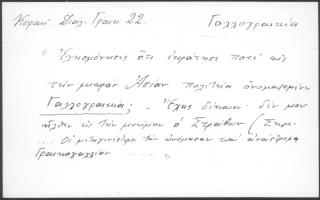 Κοραή. Διάλ. Γραικ. 22. Γαλλογραικία
" Ἐλησμόνησες ὅτι ἐκράτησε ποτὲ εἰς
τὴν μικρὰν Ἀσίαν πολιτεία ὀνομαζομένη
Γαλλογραικία; - Ἔχεις δίκαιον· δὲν μου
ἦλθεν εἰς τὴν μνήμην ὁ Στράβων (
.... Οἱ μεταγενέστεροι τὴν ὠνόμασαν καὶ ἀνάστροφα
Γραικογαλλίαν ...........